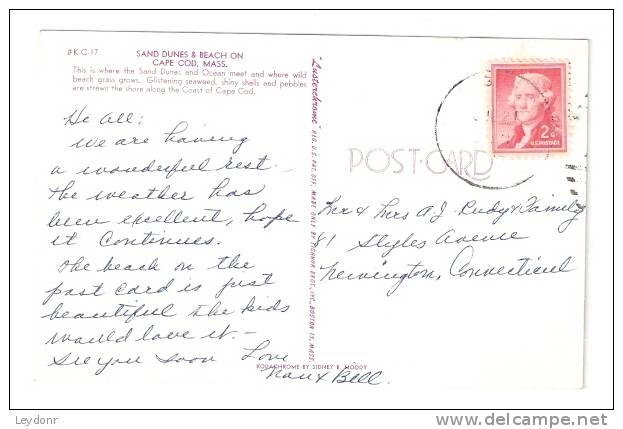 #K-C-17
SAND DUNES & BEACH ON
CAPE COD, MASS.
This is where the Sand Dunes and Ocean meet and where wild
beach grass grows. Glistening seaweed, shiny shells and pebbles
are strewn the shore along the Coast of Cape Cod.
Hi All:
We are having
a wonderful rest.
the weather has
been excellent, hope
it Continues.
The beach on the
post card is just
beautiful the kids
would love it. -
See you soon Love
Nan & Bill.
"Lusterchrome" REG. U.S. PAT. OFF. MADE ONLY BY TICHNOR BROS., INC., BOSTON 15, MASS.
KODACHROME BY SIDNEY B. MOODY
POST-CARD
2¢
U.S. POSTAGE
Mr & Mrs A J. Rudy & Family
81 Styles Avenue
Newington, Connecticut
Leydonr
delcampe.net